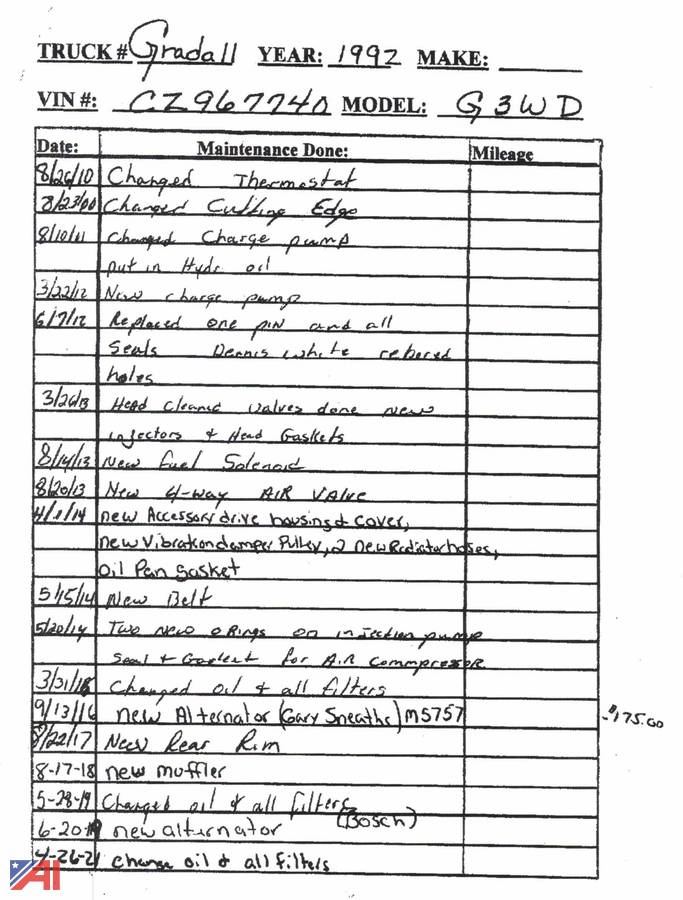 TRUCK # Gradall YEAR: 1992 MAKE:
VIN #: CZ967740 MODEL: G3WD
Date: Maintenance Done: Mileage
8/26/10 Changed Thermostat
8/23/00 Changed Cutting Edge
8/10/11 Changed Charge pump
put in Hydr oil
3/22/12 New charge pump
6/7/12 Replaced one pin and all
Seals Dennis White rebored
holes
3/26/13 Head cleaned valves done new
injectors & Head Gaskets
8/14/13 New fuel Solenoid
8/20/13 New 4-way AIR VALVE
4/1/14 new Accessory drive housing & cover,
new Vibration damper Pulley, 2 new Radiator hoses,
oil Pan gasket
5/15/14 New Belt
5/20/14 Two new o Rings on injection pump
Seal & Gasket for AiR Commpressor
3/31/16 Changed oil & all filters
9/13/16 new Alternator (Gary Sneaths) M5757 $175.00
8/22/17 New Rear Rim
8-17-18 new muffler
5-28-19 Changed oil & all filters
6-20-19 new alternator (Bosch)
4-26-21 change oil & all filters
AI